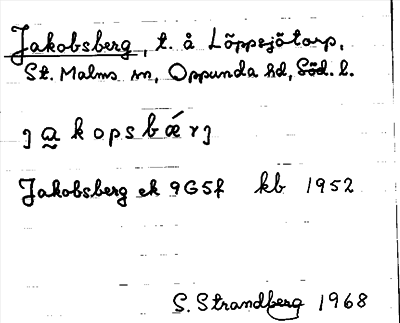 Jakobsberg, t. å Löppsjötorp,
St. Malms sn, Oppunda hd, Söd. l.
ȷa̰kopsbǽrȷ
Jakobsberg ek 9G5f kb 1952
S. Strandberg 1968